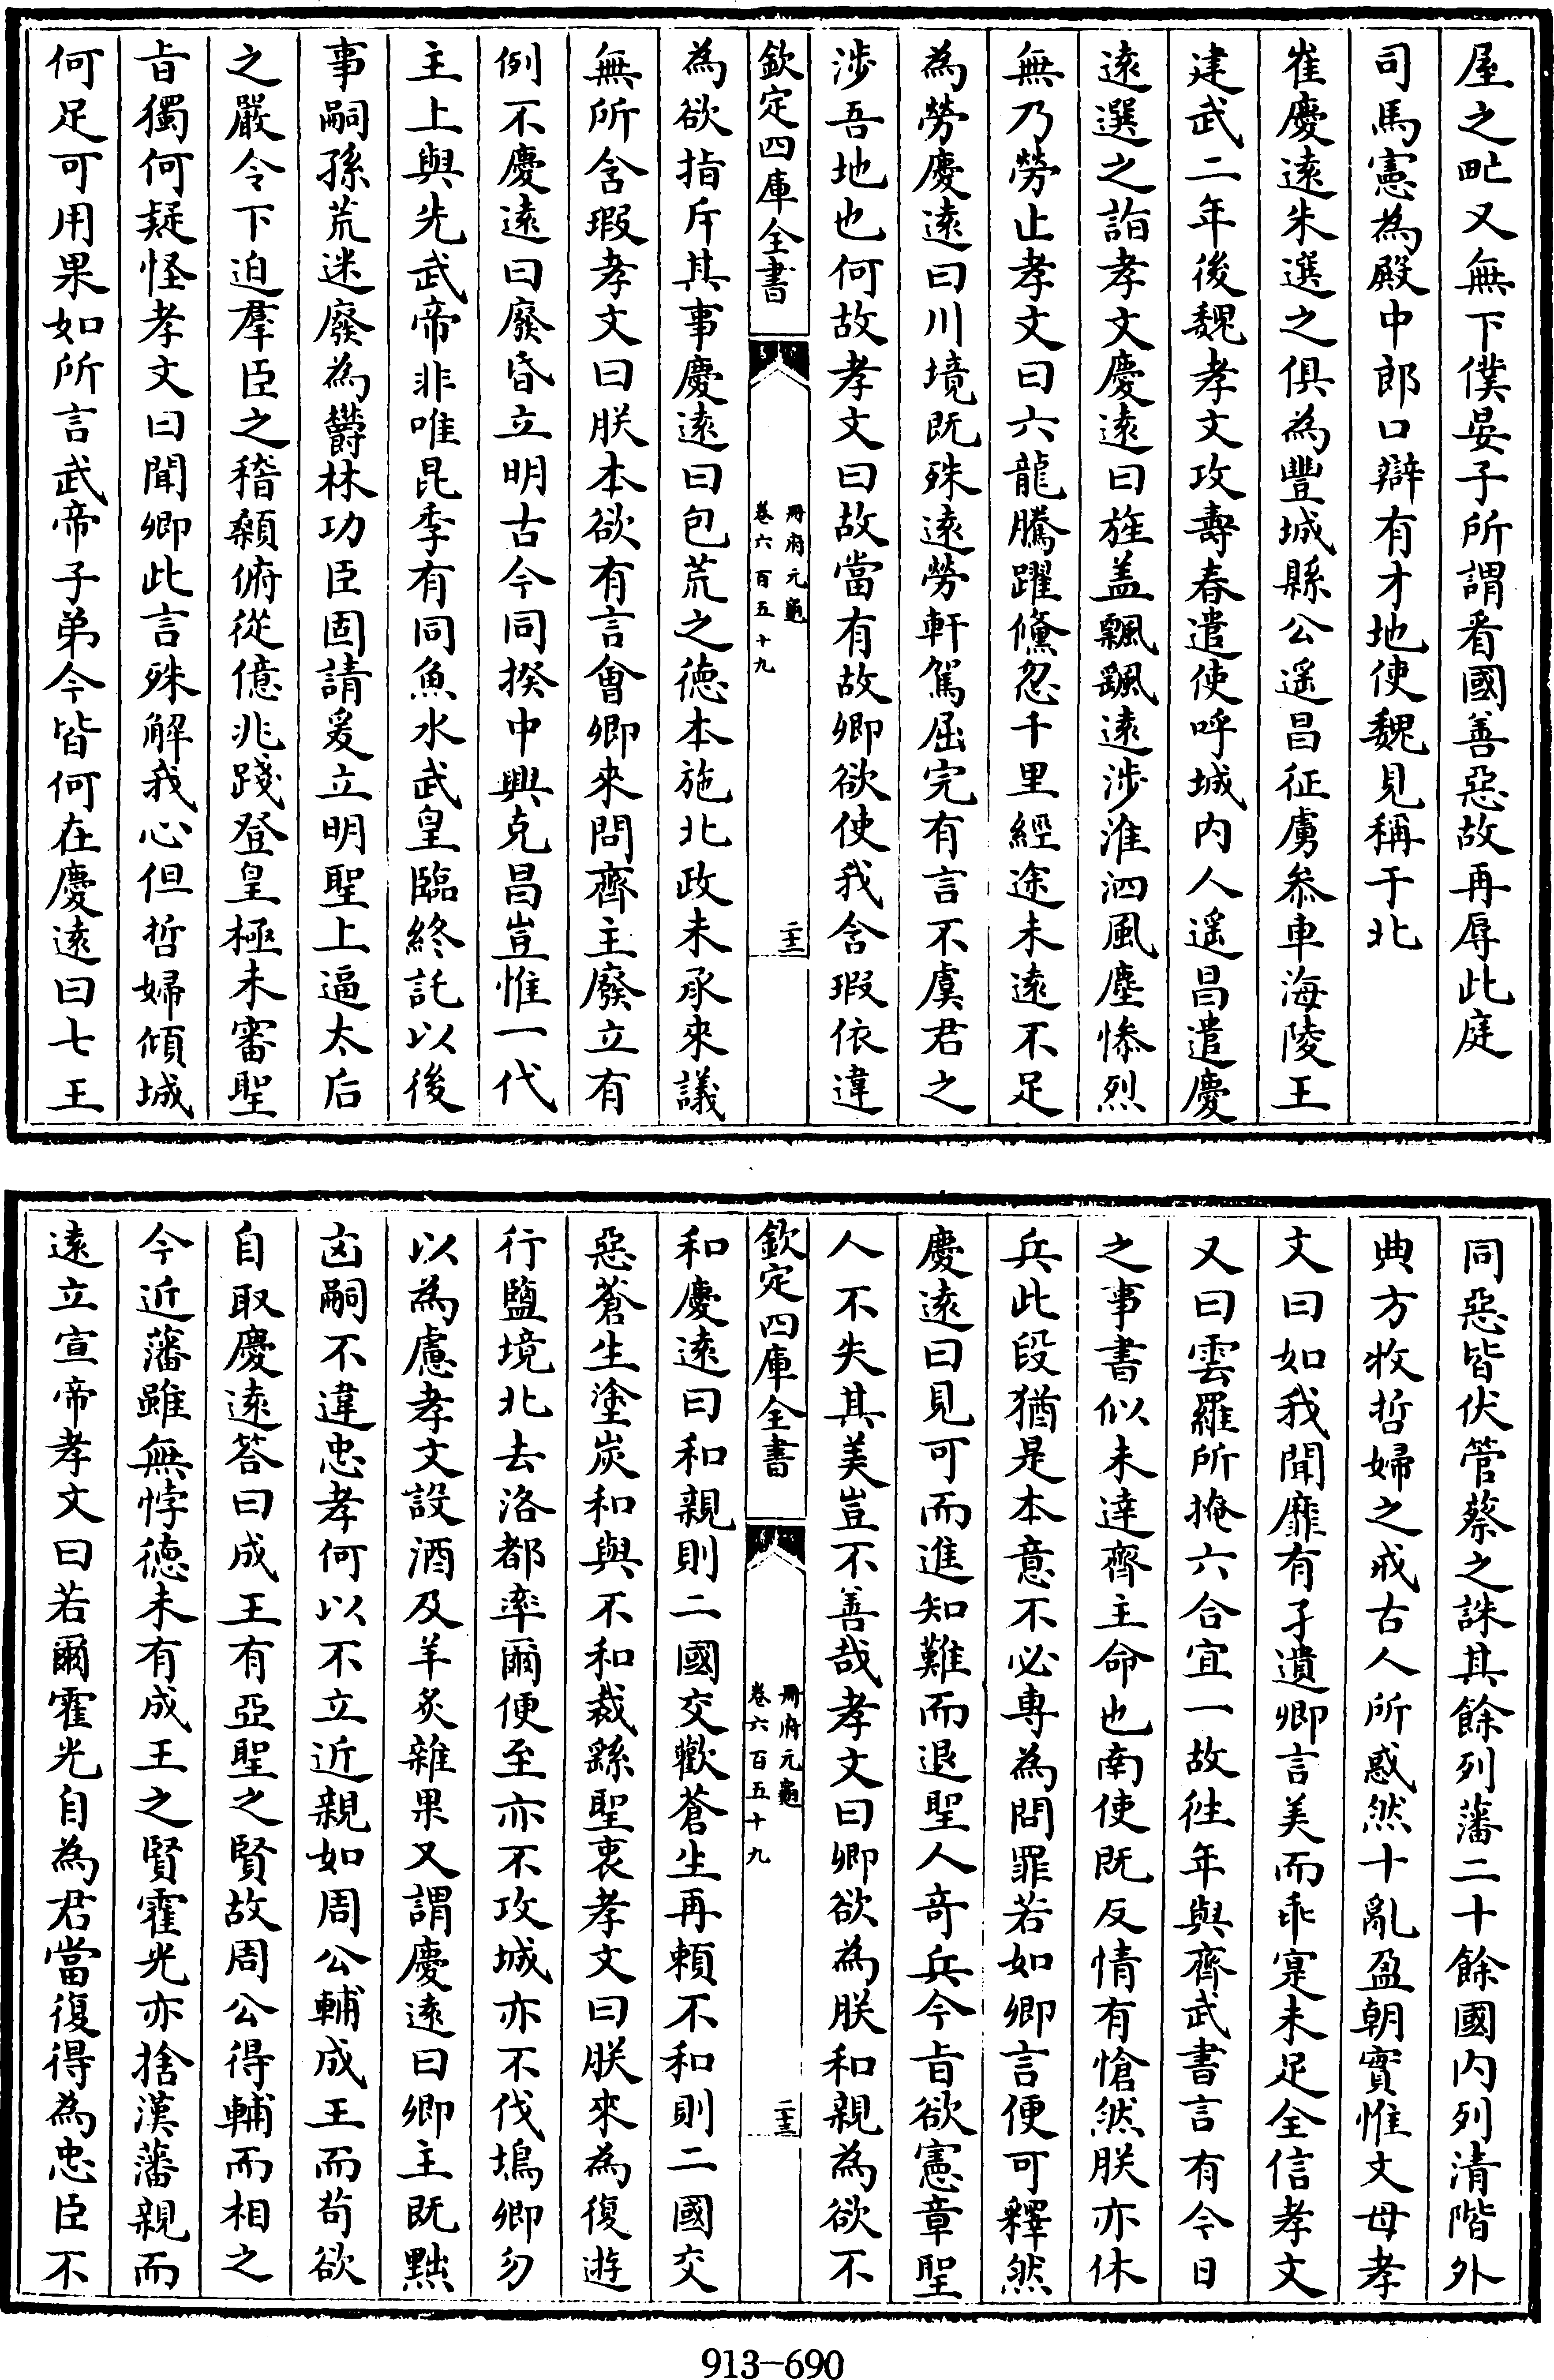 屋之甿又無下僕晏子所謂看國善惡故再辱此庭
司馬憲為殿中郎口辯有才地使魏見稱于北
崔慶遠朱選之俱為豐城縣公遥昌征虜叅車海陵王
建武二年後魏孝文攻壽春遣使呼城内人遥昌遣慶
遠選之詣孝文慶遠曰旌盖飄颻遠涉淮泗風塵慘烈
無乃勞止孝文曰六龍騰躍儵忽千里經途未遠不足
為勞慶遠曰川境既殊遠勞軒駕屈完有言不虞君之
涉吾地也何故孝文曰故當有故卿欲使我含瑕依違
欽定四庫全書
冊府元龜
卷六百五十九
二十二
為欲指斥其事慶遠曰包荒之徳本施北政未承來議
無所含瑕孝文曰朕本欲有言會卿來問齊主廢立有
例不慶遠曰廢昏立明古今同揆中興克昌豈惟一代
主上與先武帝非唯昆季有同魚水武皇臨終託以後
事嗣孫荒迷廢為鬱林功臣固請爰立明聖上逼太后
之嚴令下迫羣臣之稽顙俯從億兆踐登皇極未審聖
旨獨何疑怪孝文曰聞卿此言殊解我心但哲婦傾城
何足可用果如所言武帝子弟今皆何在慶遠曰七王
同惡皆伏管蔡之誅其餘列藩二十餘國内列清階外
典方牧哲婦之戒古人所惑然十亂盈朝實惟文母孝
文曰如我聞靡有孑遺卿言美而乖寔未足全信孝文
又曰雲羅所掩六合宜一故徃年與齊武書言有今日
之事書似未達齊主命也南使既反情有愴然朕亦休
兵此段猶是本意不必専為問罪若如卿言便可釋然
慶遠曰見可而進知難而退聖人竒兵今旨欲憲章聖
人不失其美豈不善哉孝文曰卿欲為朕和親為欲不
欽定四庫全書
冊府元龜
卷六百五十九
二十三
和慶遠曰和親則二國交歡蒼生再頼不和則二國交
惡蒼生塗炭和與不和裁繇聖衷孝文曰朕來為復遊
行鹽境北去洛都率爾便至亦不攻城亦不伐塢卿勿
以為慮孝文設酒及羊炙雜果又謂慶遠曰卿主既黜
凶嗣不違忠孝何以不立近親如周公輔成王而茍欲
自取慶遠答曰成王有亞聖之賢故周公得輔而相之
今近藩雖無悖徳未有成王之賢霍光亦捨漢藩親而
遠立宣帝孝文曰若爾霍光自為君當復得為忠臣不
913-690